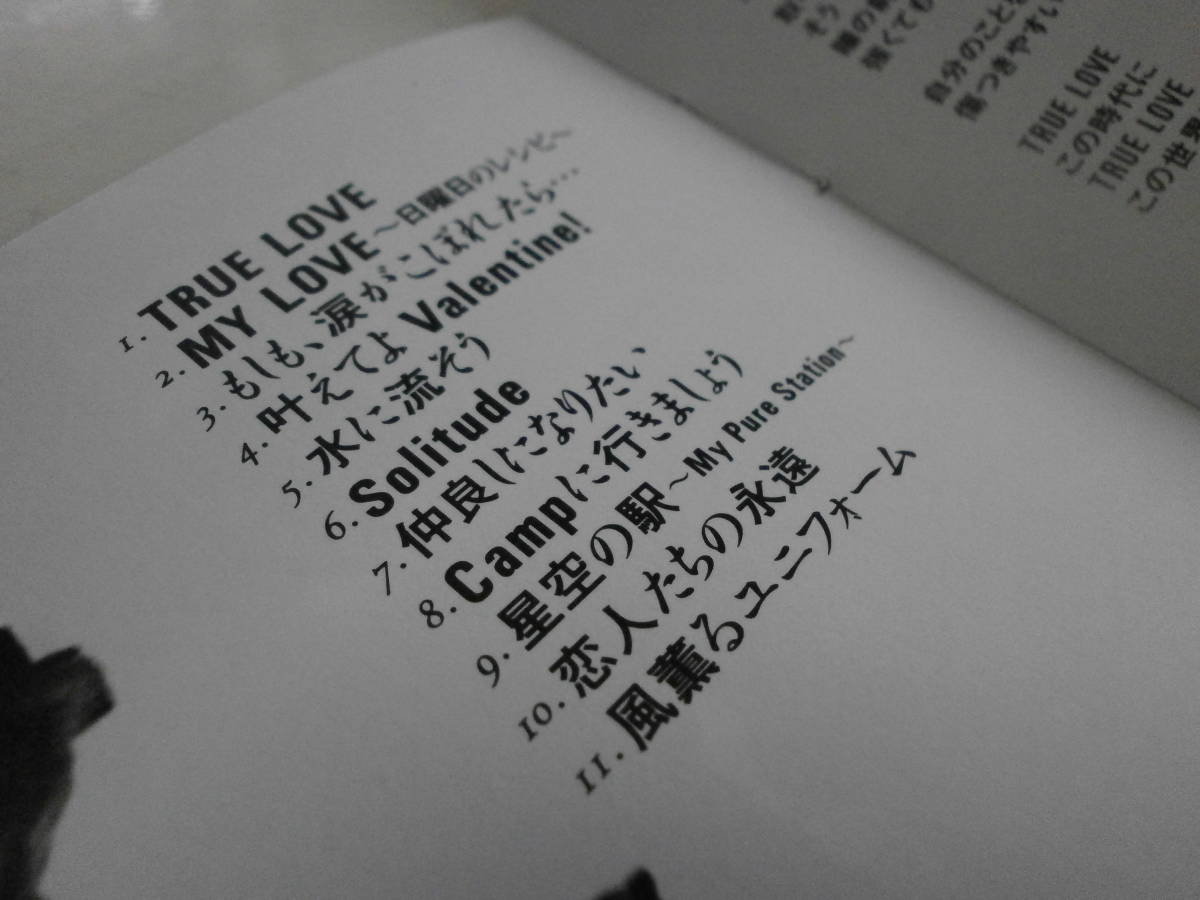 1. TRUE LOVE
2. MY LOVE～日曜日のレシピ～
3. もしも、涙がこぼれたら…
4. 叶えてよ Valentine!
5. 水に流そう
6. Solitude
7. 仲良しになりたい
8. Campに行きましょう
9. 星空の駅～My Pure Station～
10. 恋人たちの永遠
11. 風薫るユニフォーム
そう
強くても
自分のことを
傷つきやすい
TRUE LOVE
この時代に
TRUE LOVE
この世界